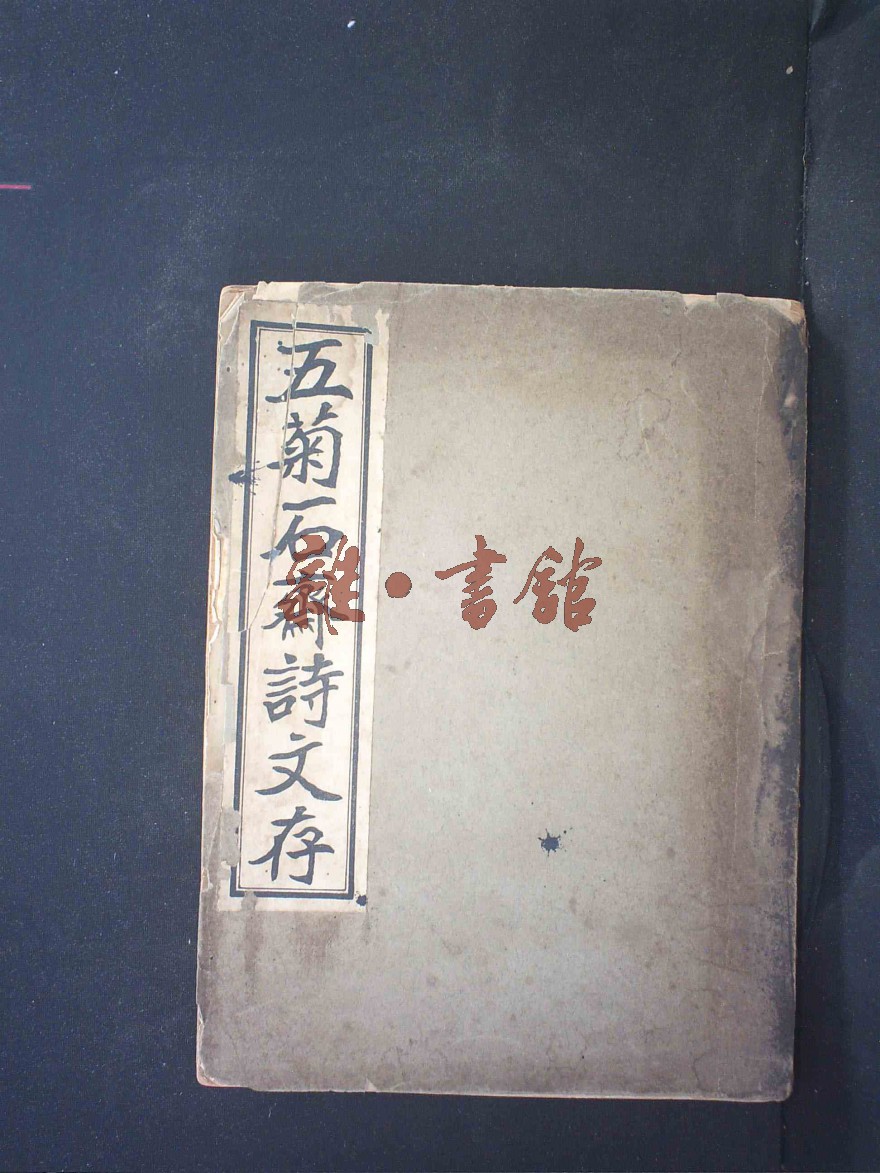 五菊石齋詩文存
雜·書館